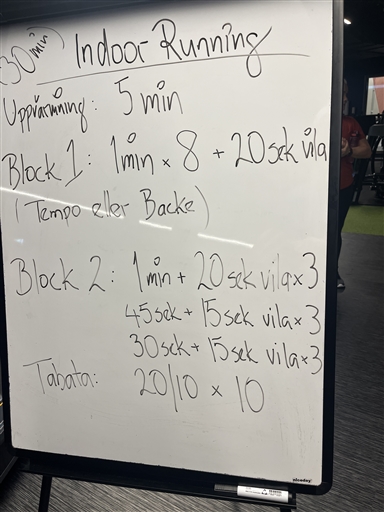 (30 min) Indoor Running
Uppvärmning: 5 min
Block 1: 1 min × 8 + 20 sek vila
(Tempo eller Backe)
Block 2: 1 min + 20 sek vila × 3
45 sek + 15 sek vila × 3
30 sek + 15 sek vila × 3
Tabata: 20/10 × 10
niceday